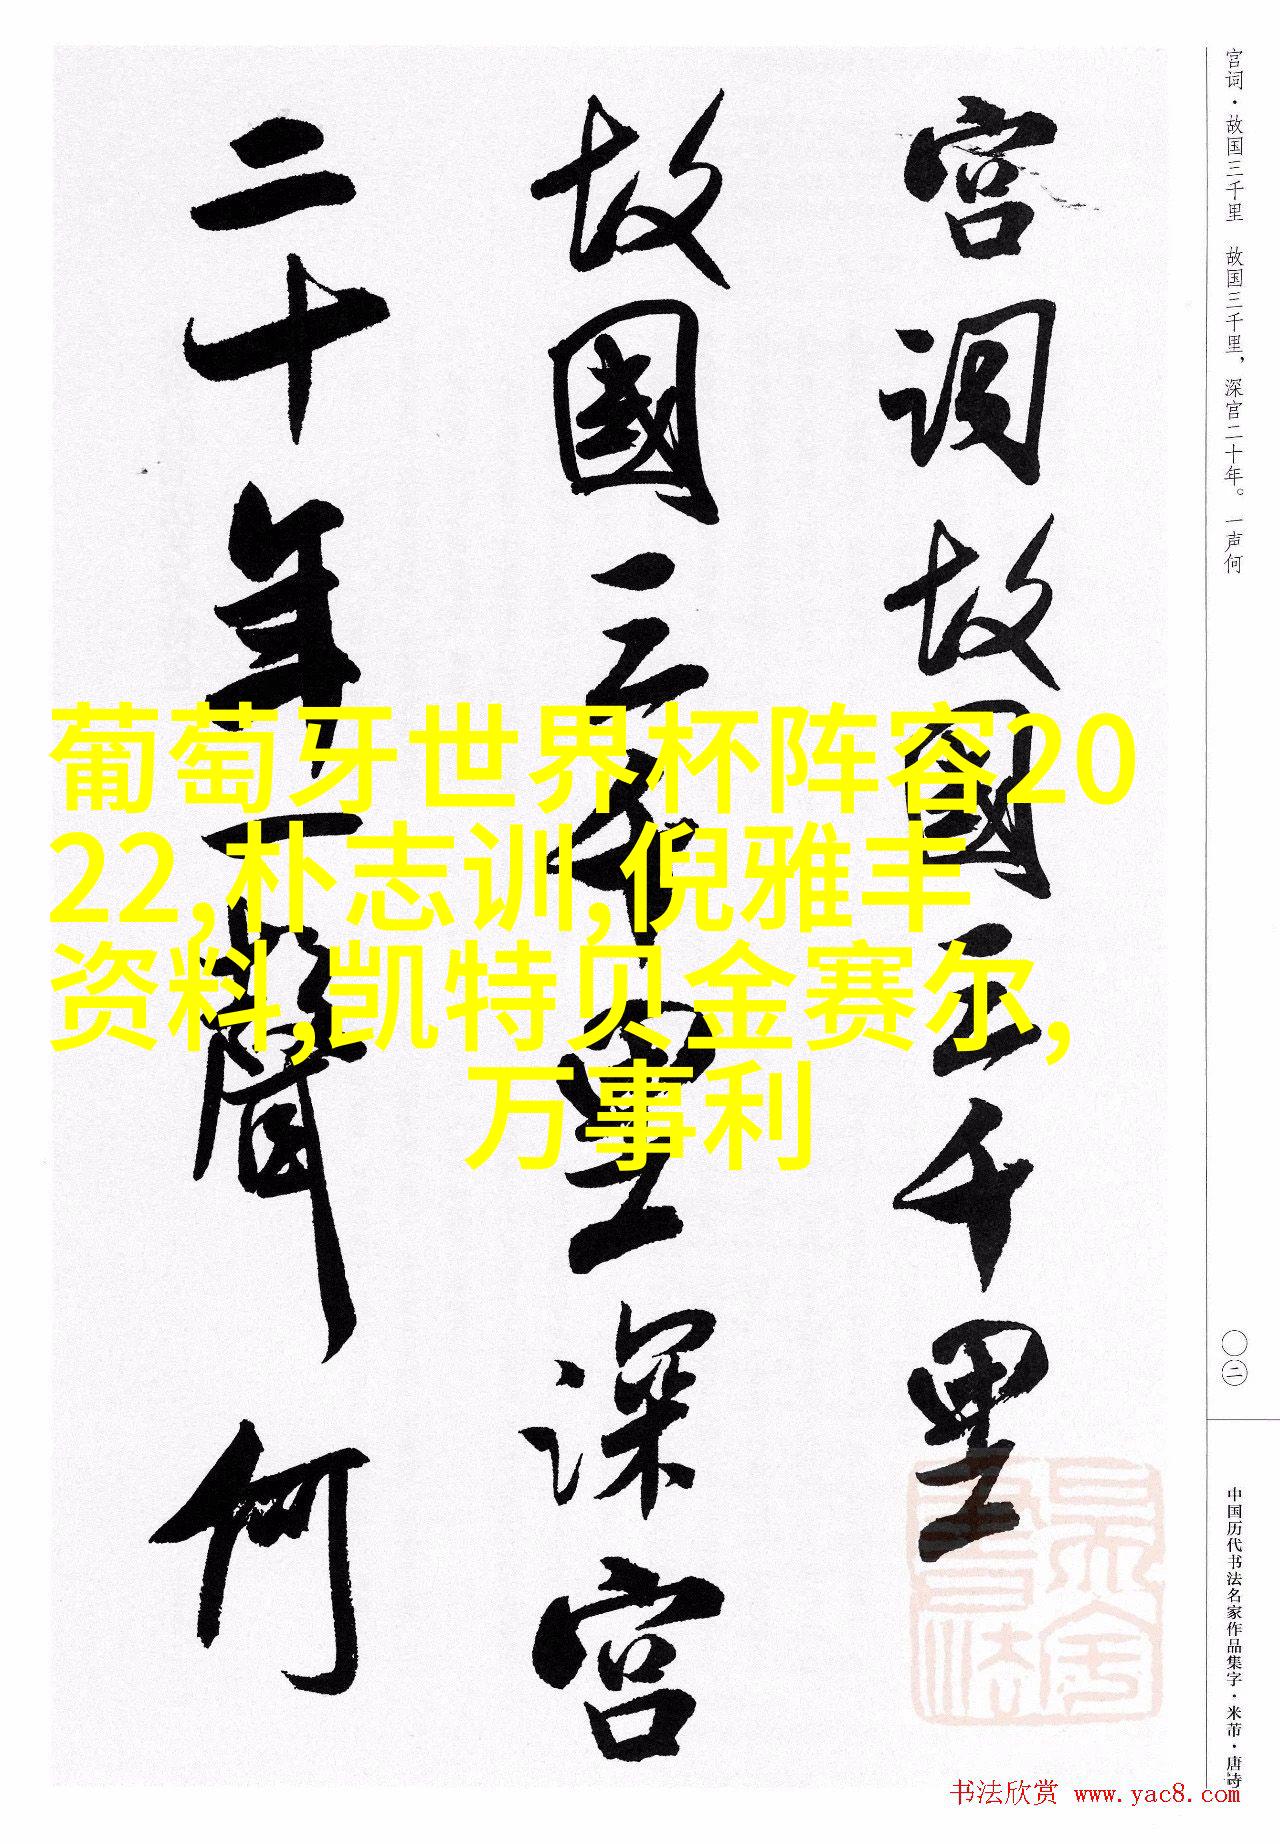 宫词故國三千里
故國三千里深宫
二十年一聲何
宫词·故国三千里 故国三千里，深宫二十年。一声何
〇二
中国历代书法名家作品集字·米芾·唐诗
葡萄牙世界杯阵容20
22,朴志训,倪雅丰
资料,凯特贝金赛尔,
万事利
书法欣赏 www.yac8.com